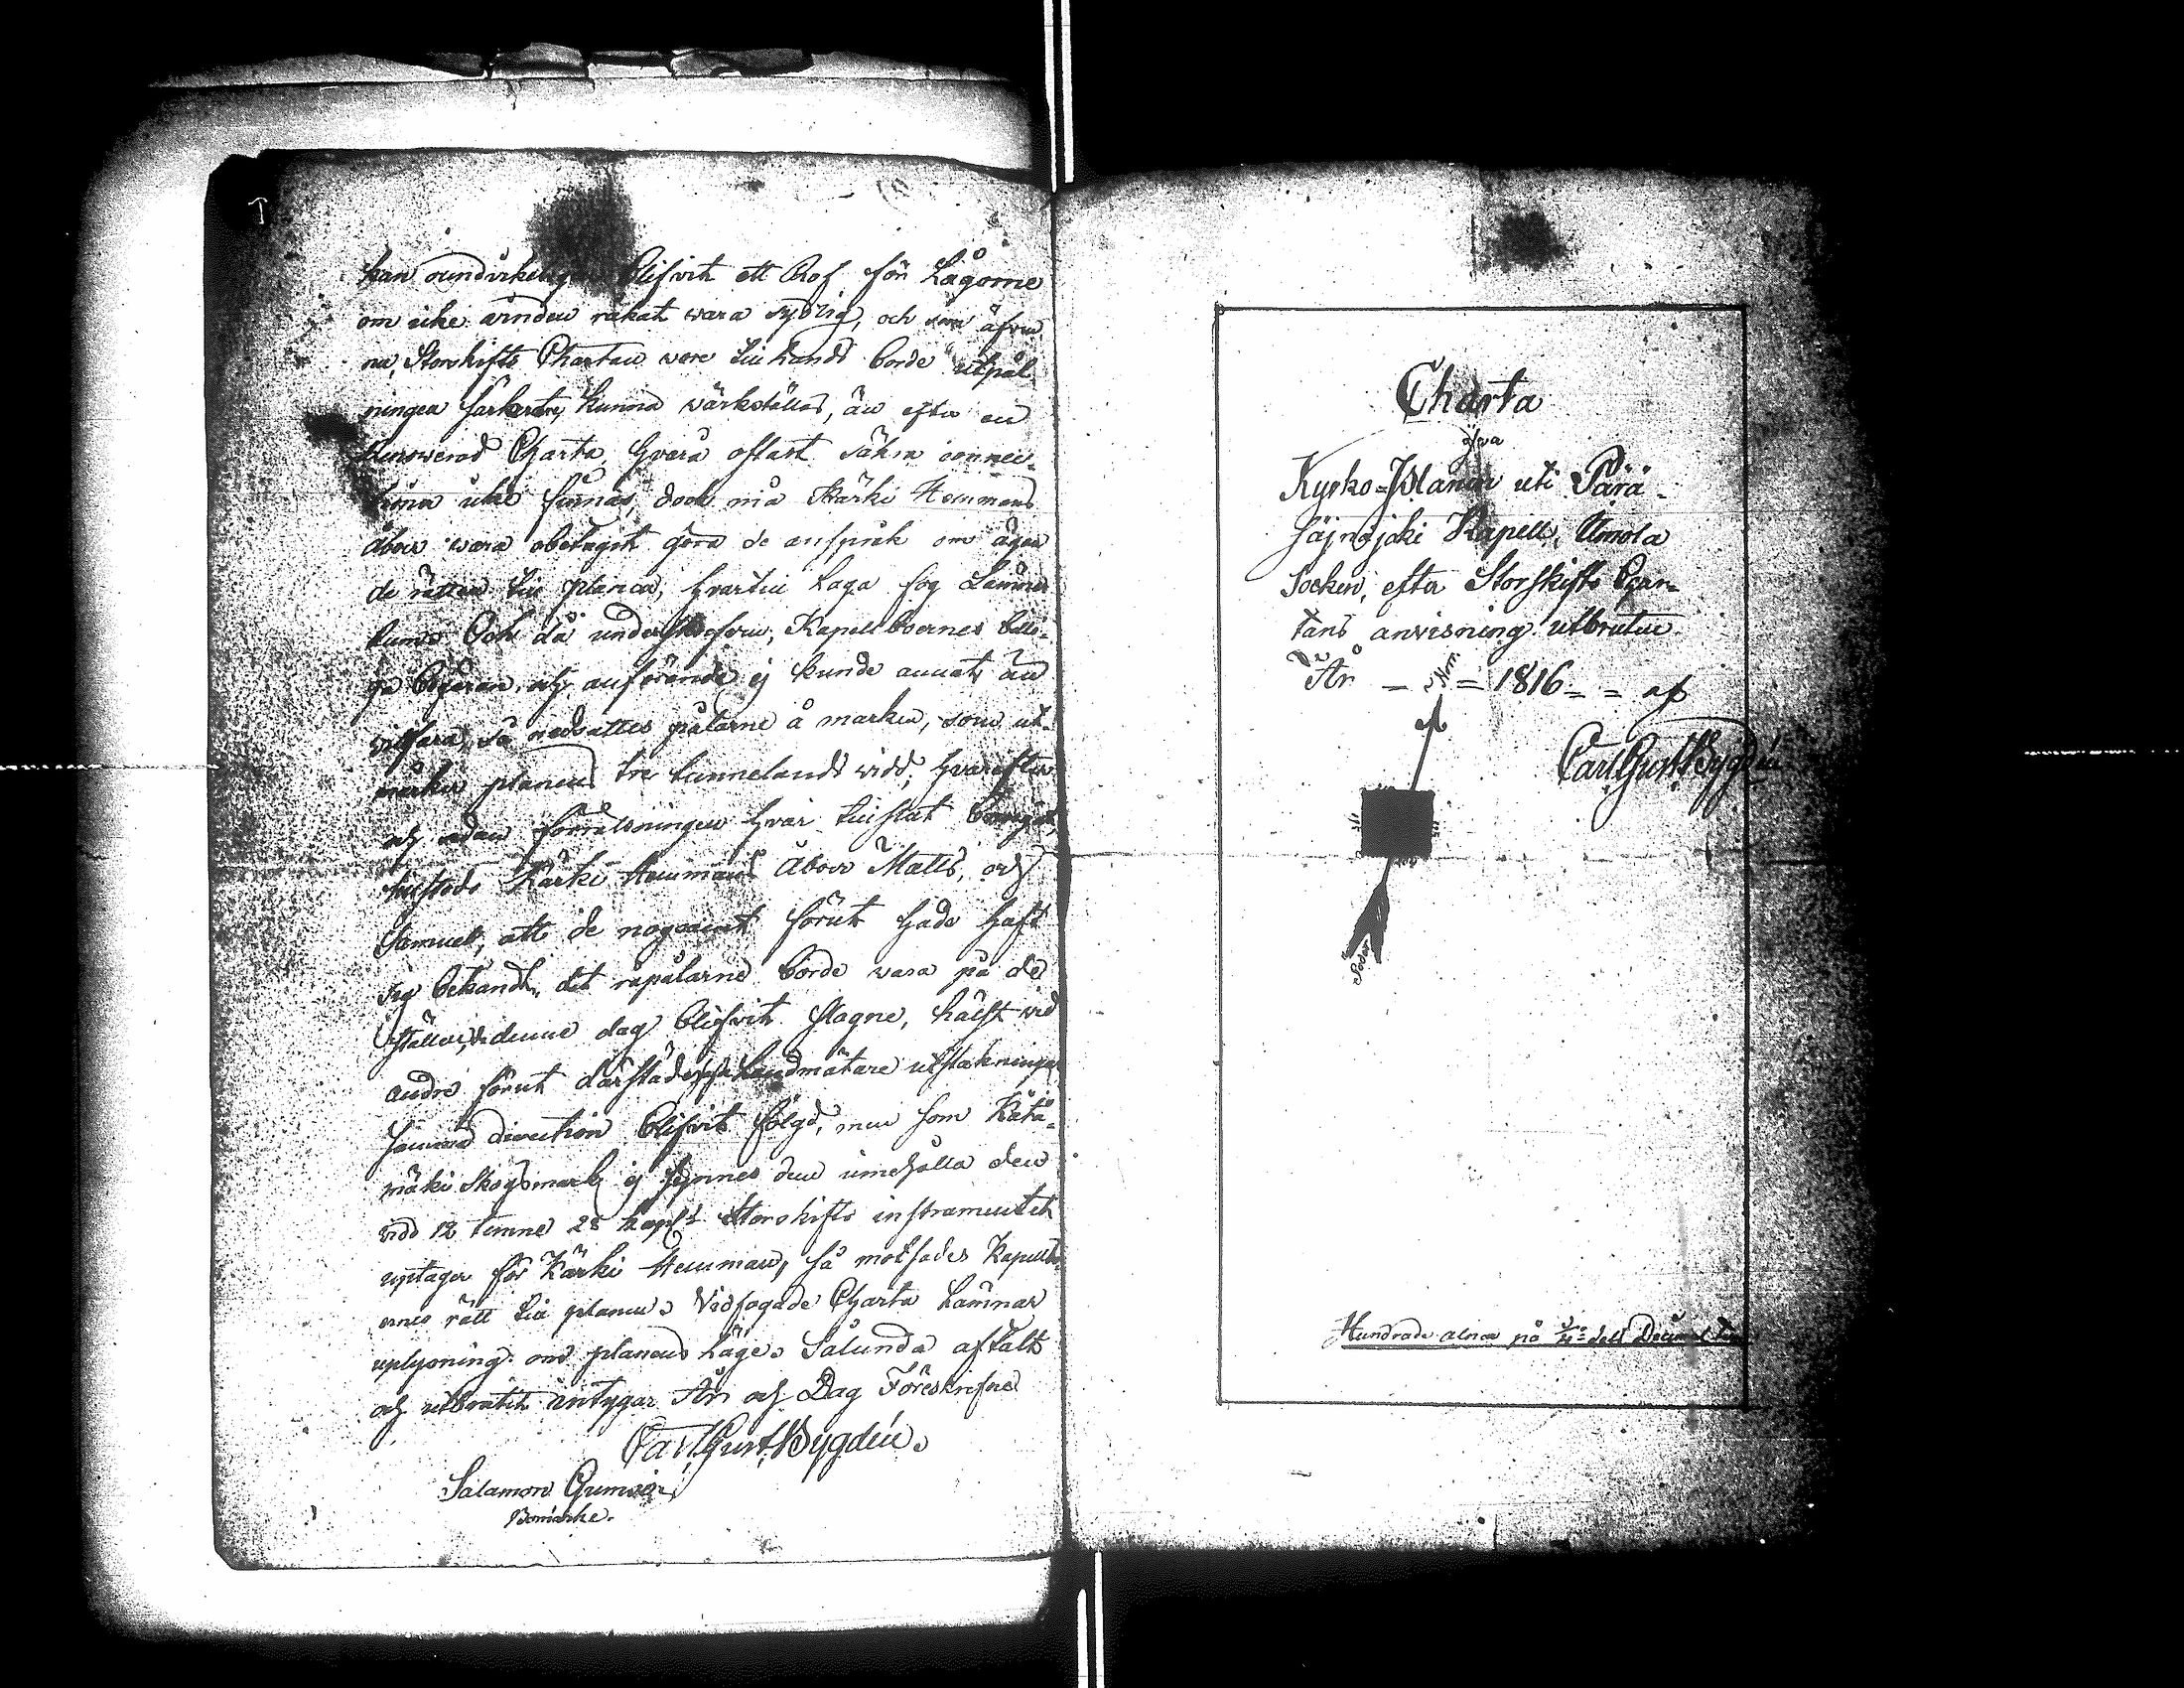 kan oundvikeligen blifvit ett Rof för Lågorne
om icke vinden råkat wara sydlig, och som äfven
na, Storskifts Chartan vore tillhands borde utpål
ningen säkrare kunna värkställas, än efter en
Charta, hvara oftast säkra connec-
icke finnas, dock må Kärki Hemmans
Åboer wara obetagit göra de anspråk om ägan
de rätten till planen, hvartill Laga fog Lämnar
dem. Och då Kapellboernes
ga begäran och anförande ej kunde annat än
villfara, så nedsattes pålarne å marken, som ut-
märker planens tre tunnelands vidd, hvarefter
och sedan förrättningen hvar tillstat
Kärki Hemmans Åboer Matts, och
Samuel, att de nogsamt förut hade haft
sig bekandt, det råpålarne borde vara på de
ställen, de denne dag blifvit slagne, hälst vid
andre förut därstädes Landmätare utstakningar
samma direction blifvit följd, men som Kätä-
mäki Skogsmark ej synnes den innehålla den
vidd 12 tunne 28 kapl:d Storskifts instrumentet
uptager för Kärki Hemman, så motsades Kapellbo
ernes rätt till planen. Vidfogade Charta Lämnar
uplysning om planens Läge. Sålunda aftalt
och utbrutit intygar År och Dag Föreskrifne
Carl Gust. Bygdén.
Salamon
Bomärke.
Charta
öfver
Kyrko-Planen uti Pärä-
Säjnäjoki Kapell, Umola
Socken, efter Storskifts Char-
tans anvisning utbruten
År 1816 af
Norr.
Carl Gust. Bygdén
Söder
Hundrade alnar på dels Decimal